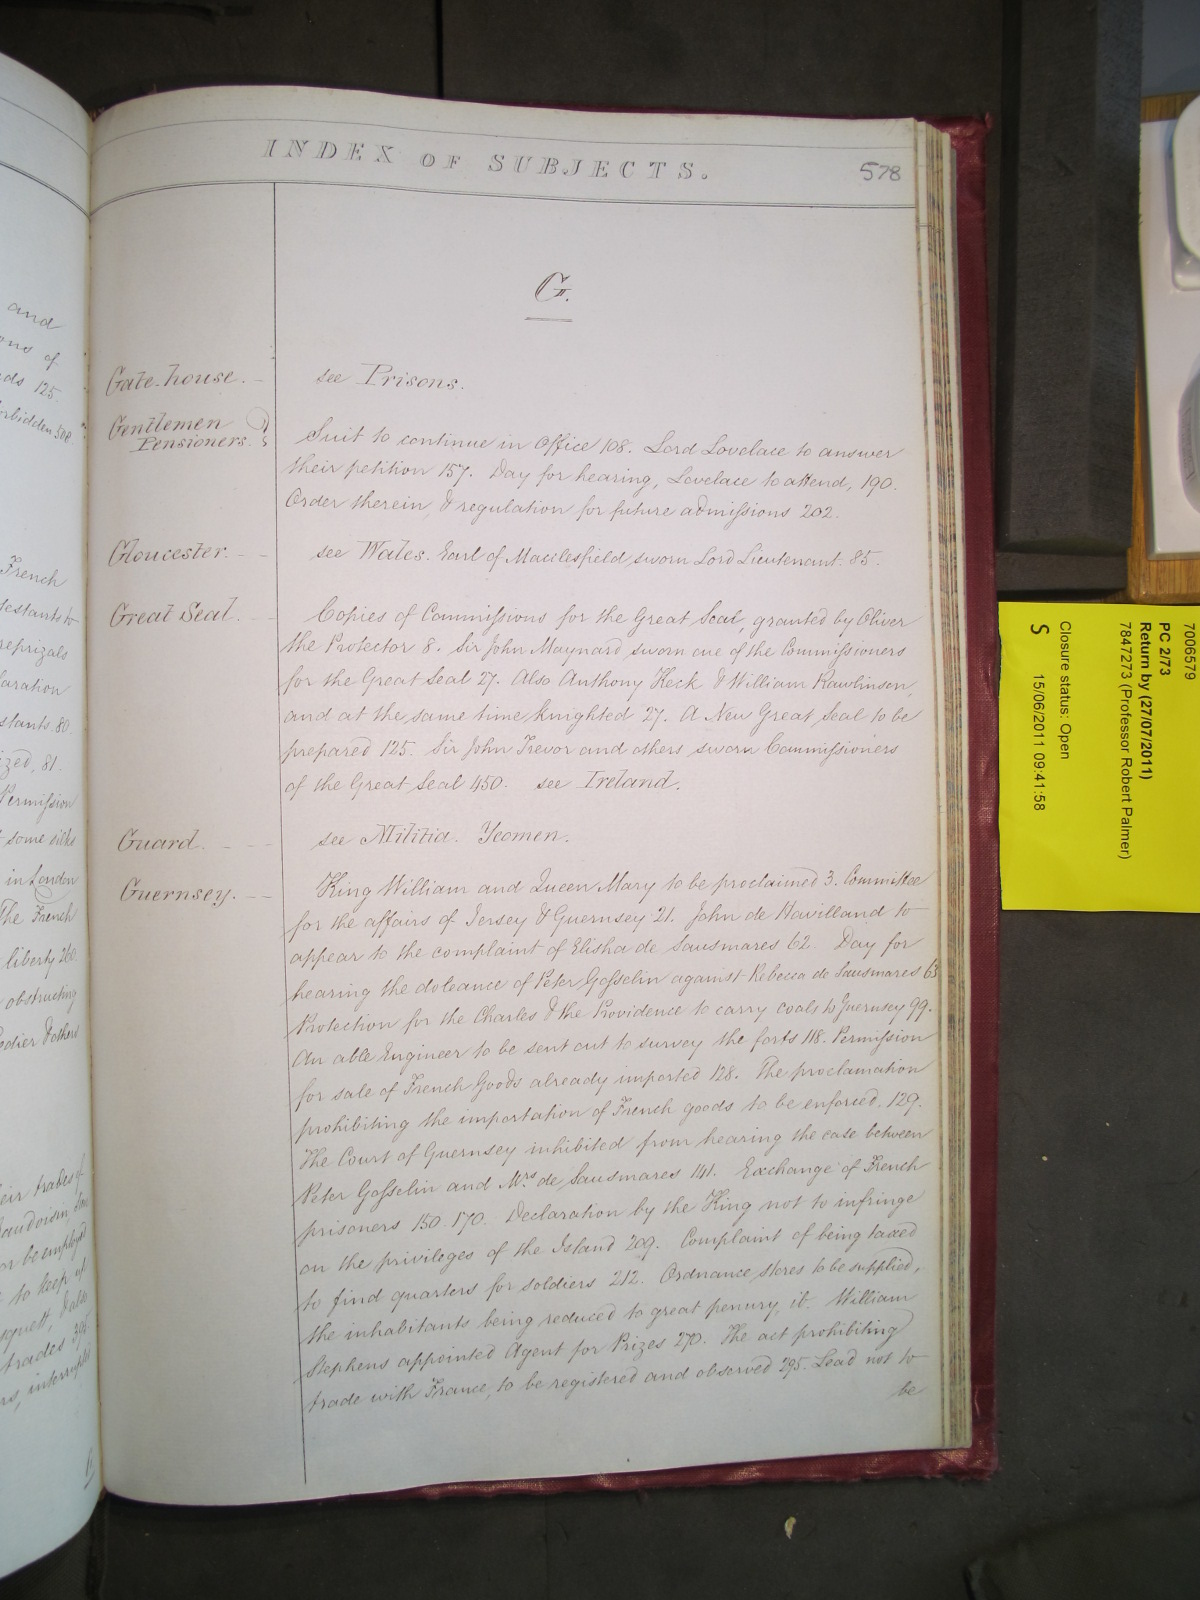 INDEX OF SUBJECTS.
578
G.
Gate-house. - see Prisons.
Gentlemen
Pensioners.
Suit to continue in Office 108. Lord Lovelace to answer
their petition 157. Day for hearing, Lovelace to attend, 190.
Order therein, & regulation for future admissions 202.
Gloucester. - - see Wales. Earl of Macclesfield sworn Lord Lieutenant. 85.
Great Seal. - - Copies of Commissions for the Great Seal, granted by Oliver
the Protector 8. Sir John Maynard sworn one of the Commissioners
for the Great Seal 27. Also Anthony Keck & William Rawlinson,
and at the same time knighted 27. A New Great Seal to be
prepared 125. Sir John Trevor and others sworn Commissioners
of the Great Seal 450. see Ireland.
Guard. - - - see Militia. Yeomen.
Guernsey. - - King William and Queen Mary to be proclaimed 3. Committee
for the affairs of Jersey & Guernsey 21. John de Havilland to
appear to the complaint of Elisha de Sausmares 62. Day for
hearing the doleance of Peter Gosselin against Rebecca de Sausmares 63
Protection for the Charles & the Providence to carry coals to Guernsey 99.
An able Engineer to be sent out to survey the forts 118. Permission
for sale of French Goods already imported 128. The proclamation
prohibiting the importation of French goods to be enforced. 129.
The Court of Guernsey inhibited from hearing the case between
Peter Gosselin and Mrs de Sausmares 141. Exchange of French
prisoners 150. 170. Declaration by the King not to infringe
on the privileges of the Island 209. Complaint of being taxed
to find quarters for soldiers 212. Ordnance stores to be supplied,
the inhabitants being reduced to great penury, it. William
Stephens appointed Agent for Prizes 270. The act prohibiting
trade with France, to be registered and observed 295. Lead not to
be
and
of
125.
forbidden 508.
French
reprizals
80
81.
Permission
some silks
in London
The French
liberty 260.
obstructing
& others
their trades
be employed
to keep up
trades
7006579
PC 2/73
Return by (27/07/2011)
7847273 (Professor Robert Palmer)
Closure status: Open
S 15/06/2011 09:41:58